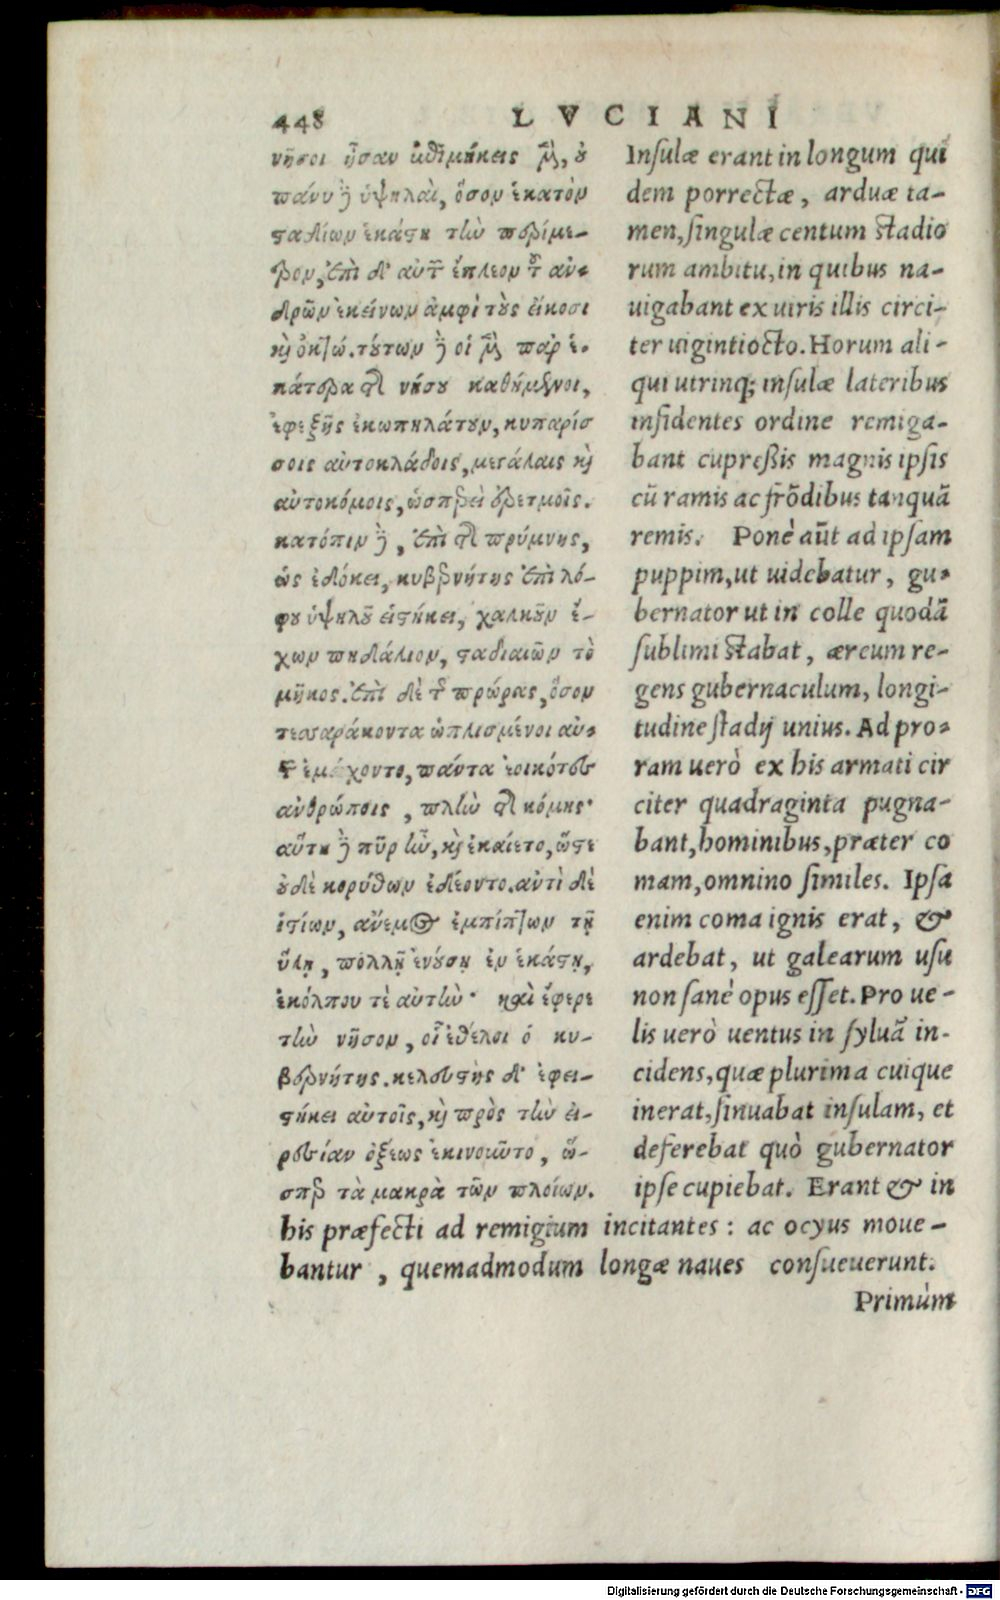 448 LVCIANI
νῆσοι ἦσαν ἐπιμήκεις μὲν, οὐ
πάνυ δὲ ὑψηλαὶ, ὅσον ἑκατὸν
σταδίων ἑκάστη τὼ περίμε-
τρον, ἐπὶ δ' αὐτῶν ἔπλεον τῶν ἀν-
δρῶν ἐκείνων ἀμφὶ τοὺς εἴκοσι
καὶ ὀκτώ. τούτων δὲ οἱ μὲν παρ' ἑ-
κάτερα τῆς νήσου καθήμενοι,
ἐφεξῆς ἐκωπηλάτουν, κυπαρίσ
σοις αὐτοκλάδοις, μεγάλαις καὶ
αὐτοκόμοις, ὡσπερεὶ ἐρετμοῖς.
κατόπιν δὲ, ἐπὶ τῆς πρύμνης,
ὡς ἐδόκει, κυβερνήτης ἐπὶ λό-
φου ὑψηλοῦ εἱστήκει, χαλκοῦν ἔ-
χων πηδάλιον, σταδιαιῶν τὸ
μῆκος. ἐπὶ δὲ τῆς πρώρας, ὅσον
τεσσαράκοντα ὡπλισμένοι αὐ-
τῶν ἐμάχοντο, πάντα ἐοικότες
ἀνθρώποις, πλὼ τῆς κόμης·
αὕτη δὲ πῦρ ἦν, καὶ ἐκαίετο, ὥστε
οὐδὲ κορύθων ἐδέοντο. ἀντὶ δὲ
ἱστίων, ἄνεμος ἐμπίπτων τῇ
ὕλῃ, πολλῇ ἐνούσῃ ἐν ἑκάστῃ,
ἐκόλπου τὲ αὐτὼ· καὶ ἔφερε
τὼ νῆσον, οἷ ἐθέλοι ὁ κυ-
βερνήτης. κελευστὴς δ' ἐφει-
στήκει αὐτοῖς, καὶ πρὸς τὼ εἰ-
ρεσίαν ὀξέως ἐκινοιῶτο, ὥ-
σπερ τὰ μακρὰ τῶν πλοίων.
Insulæ erant in longum qui
dem porrectæ, arduæ ta-
men, singulæ centum stadio
rum ambitu, in quibus na-
uigabant ex uiris illis circi-
ter uigintiocto. Horum ali-
qui utrinq; insulæ lateribus
insidentes ordine remiga-
bant cupreßis magnis ipsis
cū ramis ac frōdibus tanquā
remis. Ponè aūt ad ipsam
puppim, ut uidebatur, gu-
bernator ut in colle quodā
sublimi stabat, æreum re-
gens gubernaculum, longi-
tudine stadij unius. Ad pro-
ram uerò ex his armati cir
citer quadraginta pugna-
bant, hominibus, præter co
mam, omnino similes. Ipsa
enim coma ignis erat, &
ardebat, ut galearum usu
non sanè opus esset. Pro ue-
lis uerò uentus in syluā in-
cidens, quæ plurima cuique
inerat, sinuabat insulam, et
deferebat quò gubernator
ipse cupiebat. Erant & in
his præfecti ad remigium incitantes: ac ocyus moue-
bantur, quemadmodum longæ naues consueuerunt.
Primùm
Digitalisierung gefördert durch die Deutsche Forschungsgemeinschaft - DFG